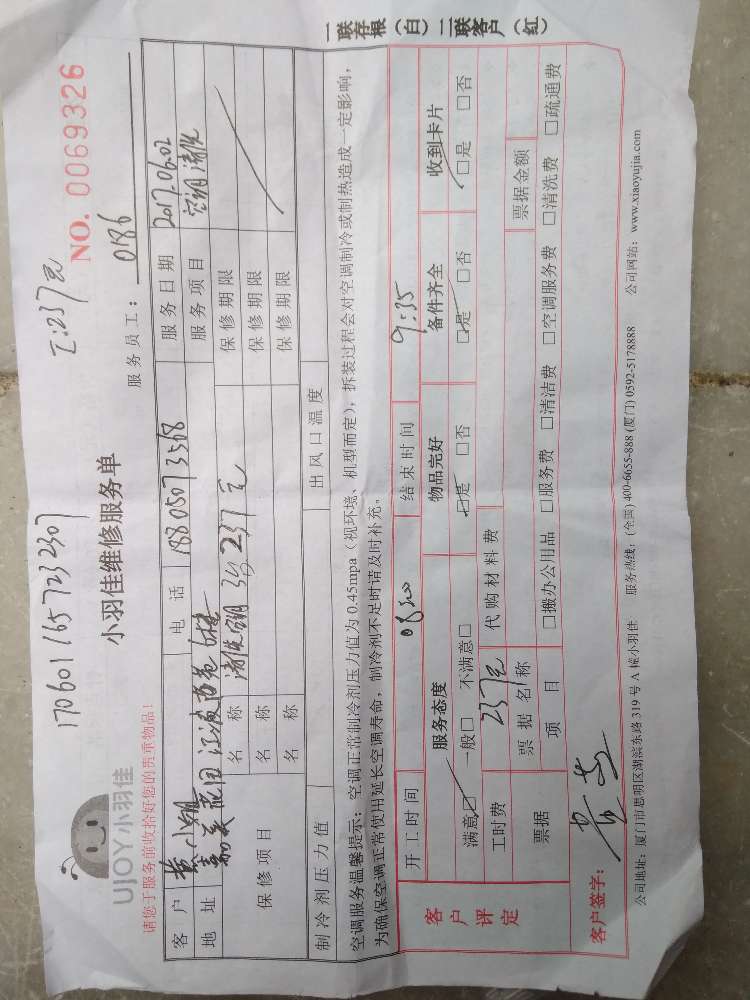 一联存根（白）二联客户（红）
1706011657232307
工:237元
NO. 0069326
UJOY小羽佳
小羽佳维修服务单
服务员工： 0186
请您于服务前收拾好您的贵重物品！
客户 黄小姐 电话 18805073568 服务日期 2017.06.02
地址 服务项目 空调清洗
保修项目 名称 清洗空调 3台 237元 保修期限
名称 保修期限
名称 保修期限
制冷剂压力值 出风口温度
空调服务温馨提示：空调正常制冷剂压力值为0.45mpa（视环境、机型而定），拆装过程会对空调制冷或制热造成一定影响，
为确保空调正常使用延长空调寿命，制冷剂不足时请及时补充。
客户评定
开工时间 结束时间 9:35
服务态度 物品完好 备件齐全 收到卡片
满意□ 一般□ 不满意□ □是 □否 □是 □否 □是 □否
工时费 237元 代购材料费
票据 票据名称 票据金额
项目 □搬办公用品 □服务费 □清洁费 □空调服务费 □清洗费 □疏通费
客户签字：
公司地址：厦门市思明区湖滨东路319号A幢小羽佳 服务热线：(全国) 400-6655-888 (厦门) 0592-5178888 公司网站：www.xiaoyujia.com